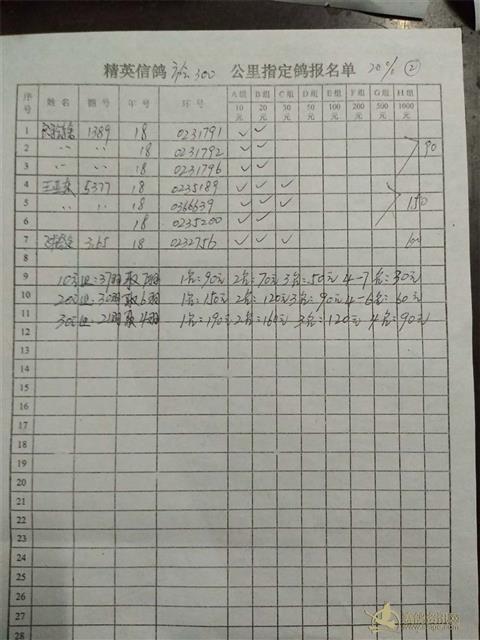 精英信鸽 300 公里指定鸽报名单 20% ②
序号 姓名 棚号 年号 环号 A组10元 B组20元 C组30元 D组50元 E组100元 F组200元 G组500元 H组1000元
1 1389 18 0231791 ✓ ✓
2 〃 〃 18 0231792 ✓ ✓ 90
3 〃 〃 18 0231796 ✓ ✓
4 5377 18 0235189 ✓ ✓ ✓
5 〃 〃 18 0366639 ✓ ✓ ✓ 150
6 18 0235200 ✓ ✓
7 365 18 0232756 ✓ ✓ ✓
8
9 10元组:37羽取7羽 1名:90元 2名:70元 3名:50元 4-7名:30元
10 20元组:30羽取6羽 1名:150元 2名:120元 3名:90元 4-6名:60元
11 30元组:21羽取4羽 1名:190元 2名:160元 3名:120元 4名:90元
12
13
14
15
16
17
18
19
20
21
22
23
24
25
26
27
28